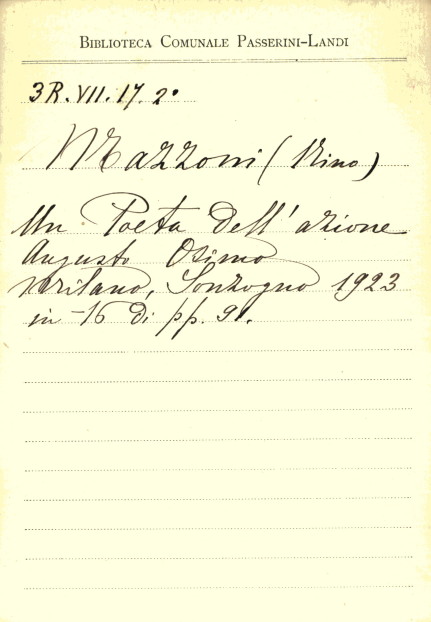 BIBLIOTECA COMUNALE PASSERINI-LANDI
3R.VII.17.2°
Mazzoni (Nino)
Un Poeta dell'azione
Augusto Osimo
Milano, Sonzogno 1923
in-16 di pp. 91.